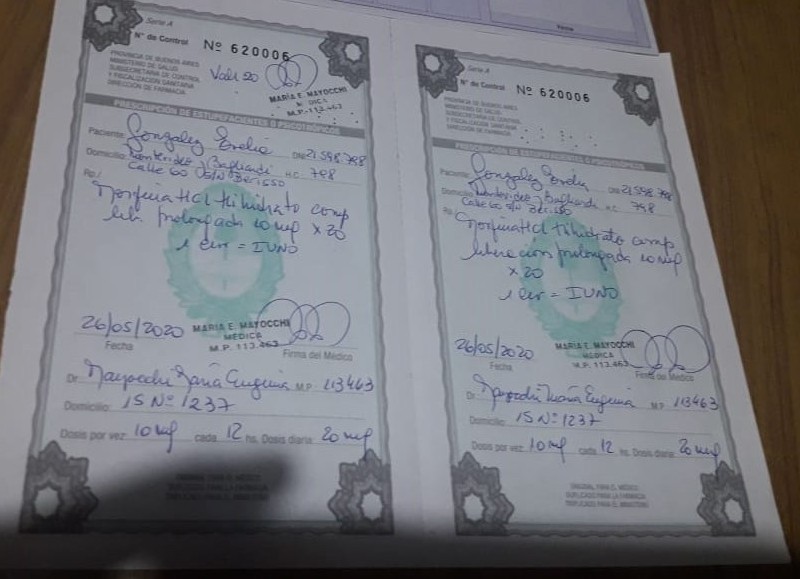 Serie A
N° de Control Nº 620006
PROVINCIA DE BUENOS AIRES
MINISTERIO DE SALUD
SUBSECRETARIA DE CONTROL
Y FISCALIZACION SANITARIA
DIRECCION DE FARMACIA
Vale 20
MARIA E. MAYOCCHI
MEDICA
M.P. 113.463
PRESCRIPCIÓN DE ESTUPEFACIENTES O PSICOTRÓPICOS
Paciente: Gonzalez DNI 21.598.798
Domicilio: Montevideo y H.C. 798
Calle 60 S/N Berisso
Rp./
Morfina HCl trihidrato comp
lib. prolongada 10 mg x 20
1 env = IUNO
26/05/2020
MARIA E. MAYOCCHI
MEDICA
M.P. 113.463
Fecha Firma del Médico
Dr. Mayocchi María Eugenia M.P. 113463
Domicilio: 15 Nº 1237
Dosis por vez: 10 mg cada 12 hs. Dosis diaria: 20 mg
ORIGINAL PARA EL MEDICO
DUPLICADO PARA LA FARMACIA
TRIPLICADO PARA EL MINISTERIO
Serie A
N° de Control Nº 620006
PROVINCIA DE BUENOS AIRES
MINISTERIO DE SALUD
SUBSECRETARIA DE CONTROL
Y FISCALIZACION SANITARIA
DIRECCION DE FARMACIA
PRESCRIPCIÓN DE ESTUPEFACIENTES O PSICOTRÓPICOS
Paciente: Gonzalez DNI 21.598.798
Domicilio: Montevideo y 798
Calle 60 S/N Berisso
Rp.
Morfina HCl trihidrato comp
liberacion prolongada 10 mg
x 20
1 env = IUNO
26/05/2020
MARIA E. MAYOCCHI
MEDICA
M.P. 113.463
Fecha Firma del Médico
Dr. Mayocchi María Eugenia M.P. 113463
Domicilio: 15 Nº 1237
Dosis por vez: 10 mg cada 12 hs. Dosis diaria: 20 mg
ORIGINAL PARA EL MEDICO
DUPLICADO PARA LA FARMACIA
TRIPLICADO PARA EL MINISTERIO